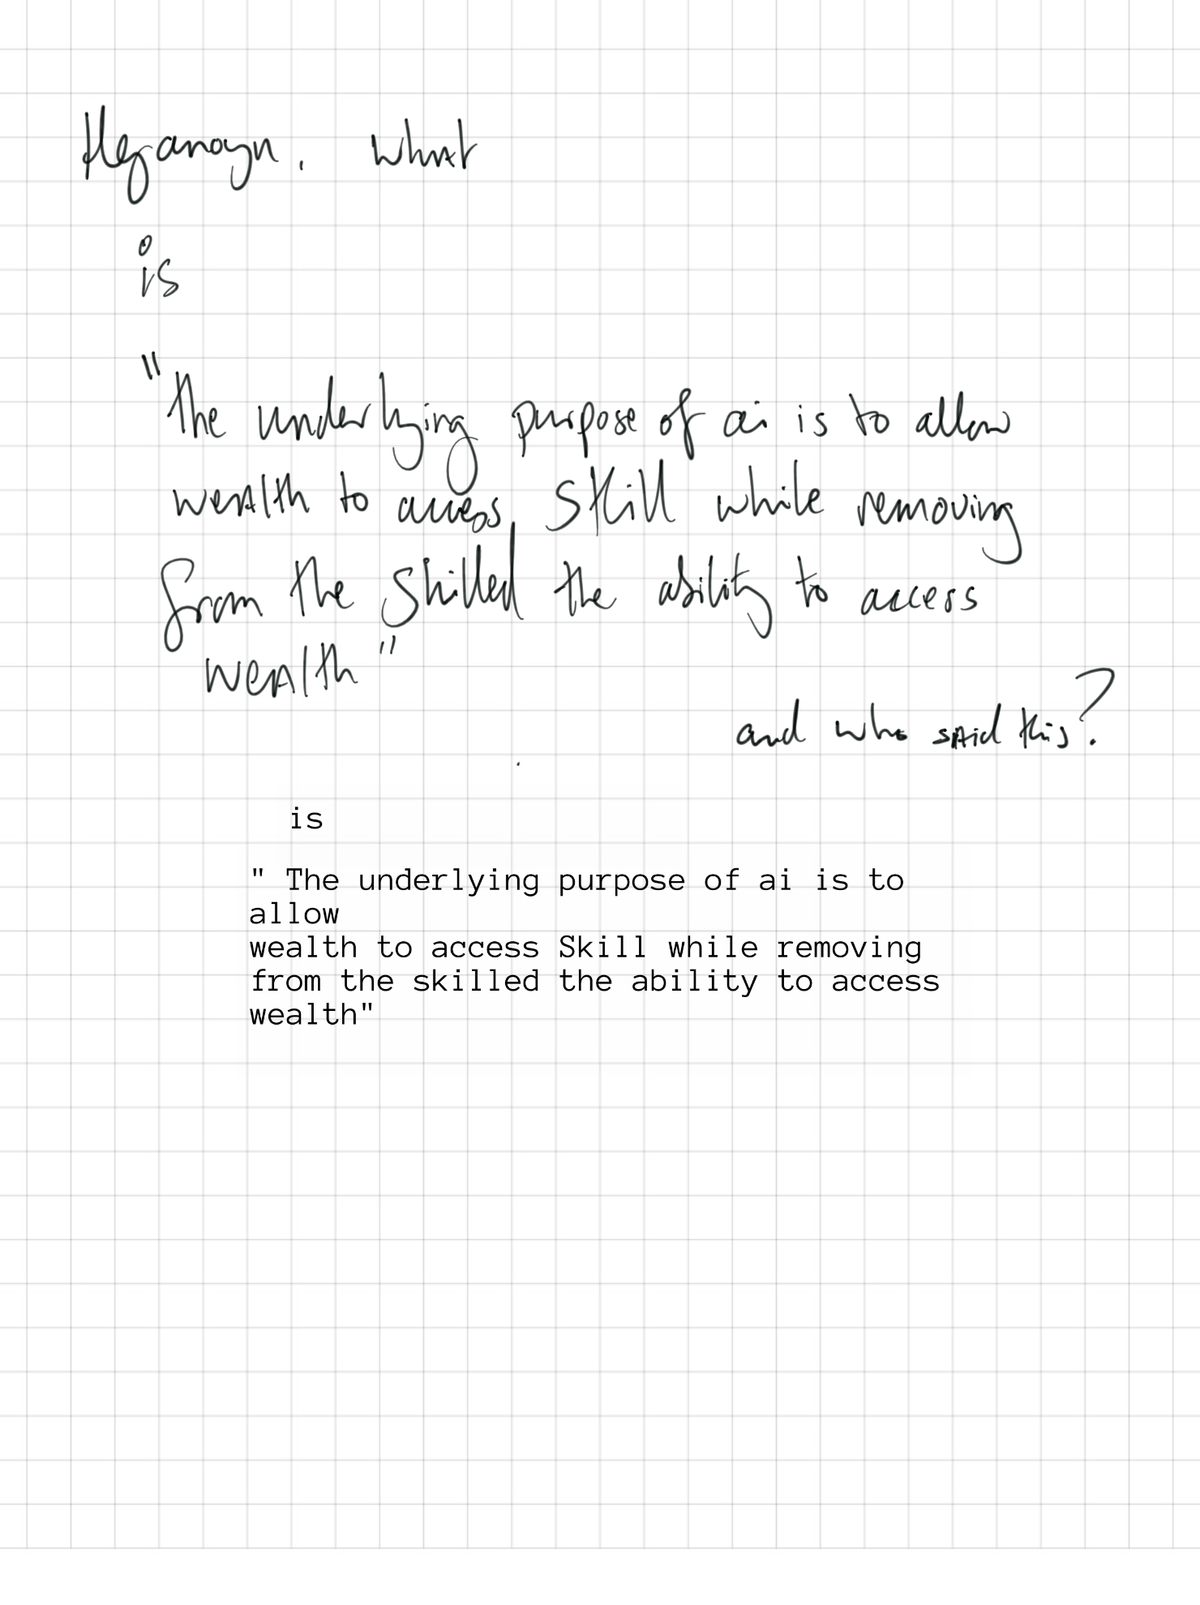 what
is
"The underlying purpose of ai is to allow
wealth to access Skill while removing
from the Skilled the ability to access
wealth"
and who said this?
is
" The underlying purpose of ai is to
allow
wealth to access Skill while removing
from the skilled the ability to access
wealth"